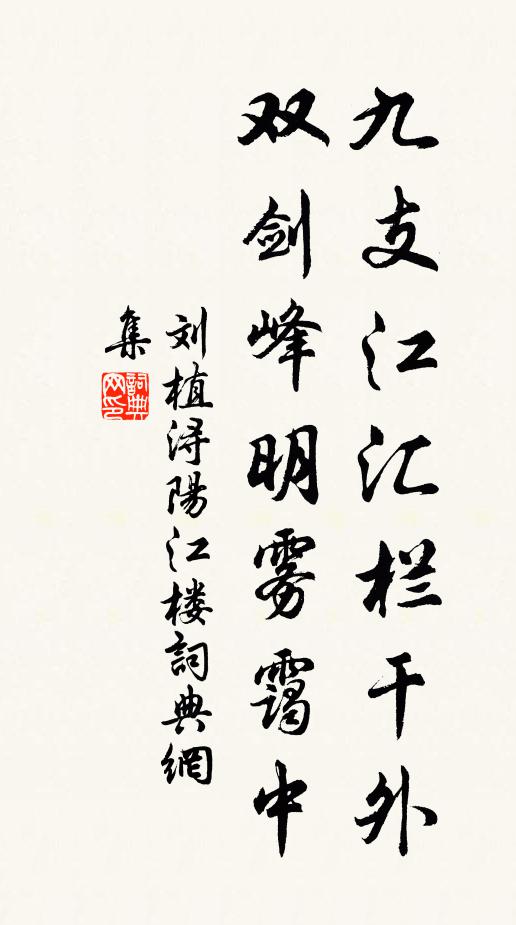 九支江汇栏干外
双剑峰明雾霭中
刘植浔陽江楼詞典網
集
詞典网印